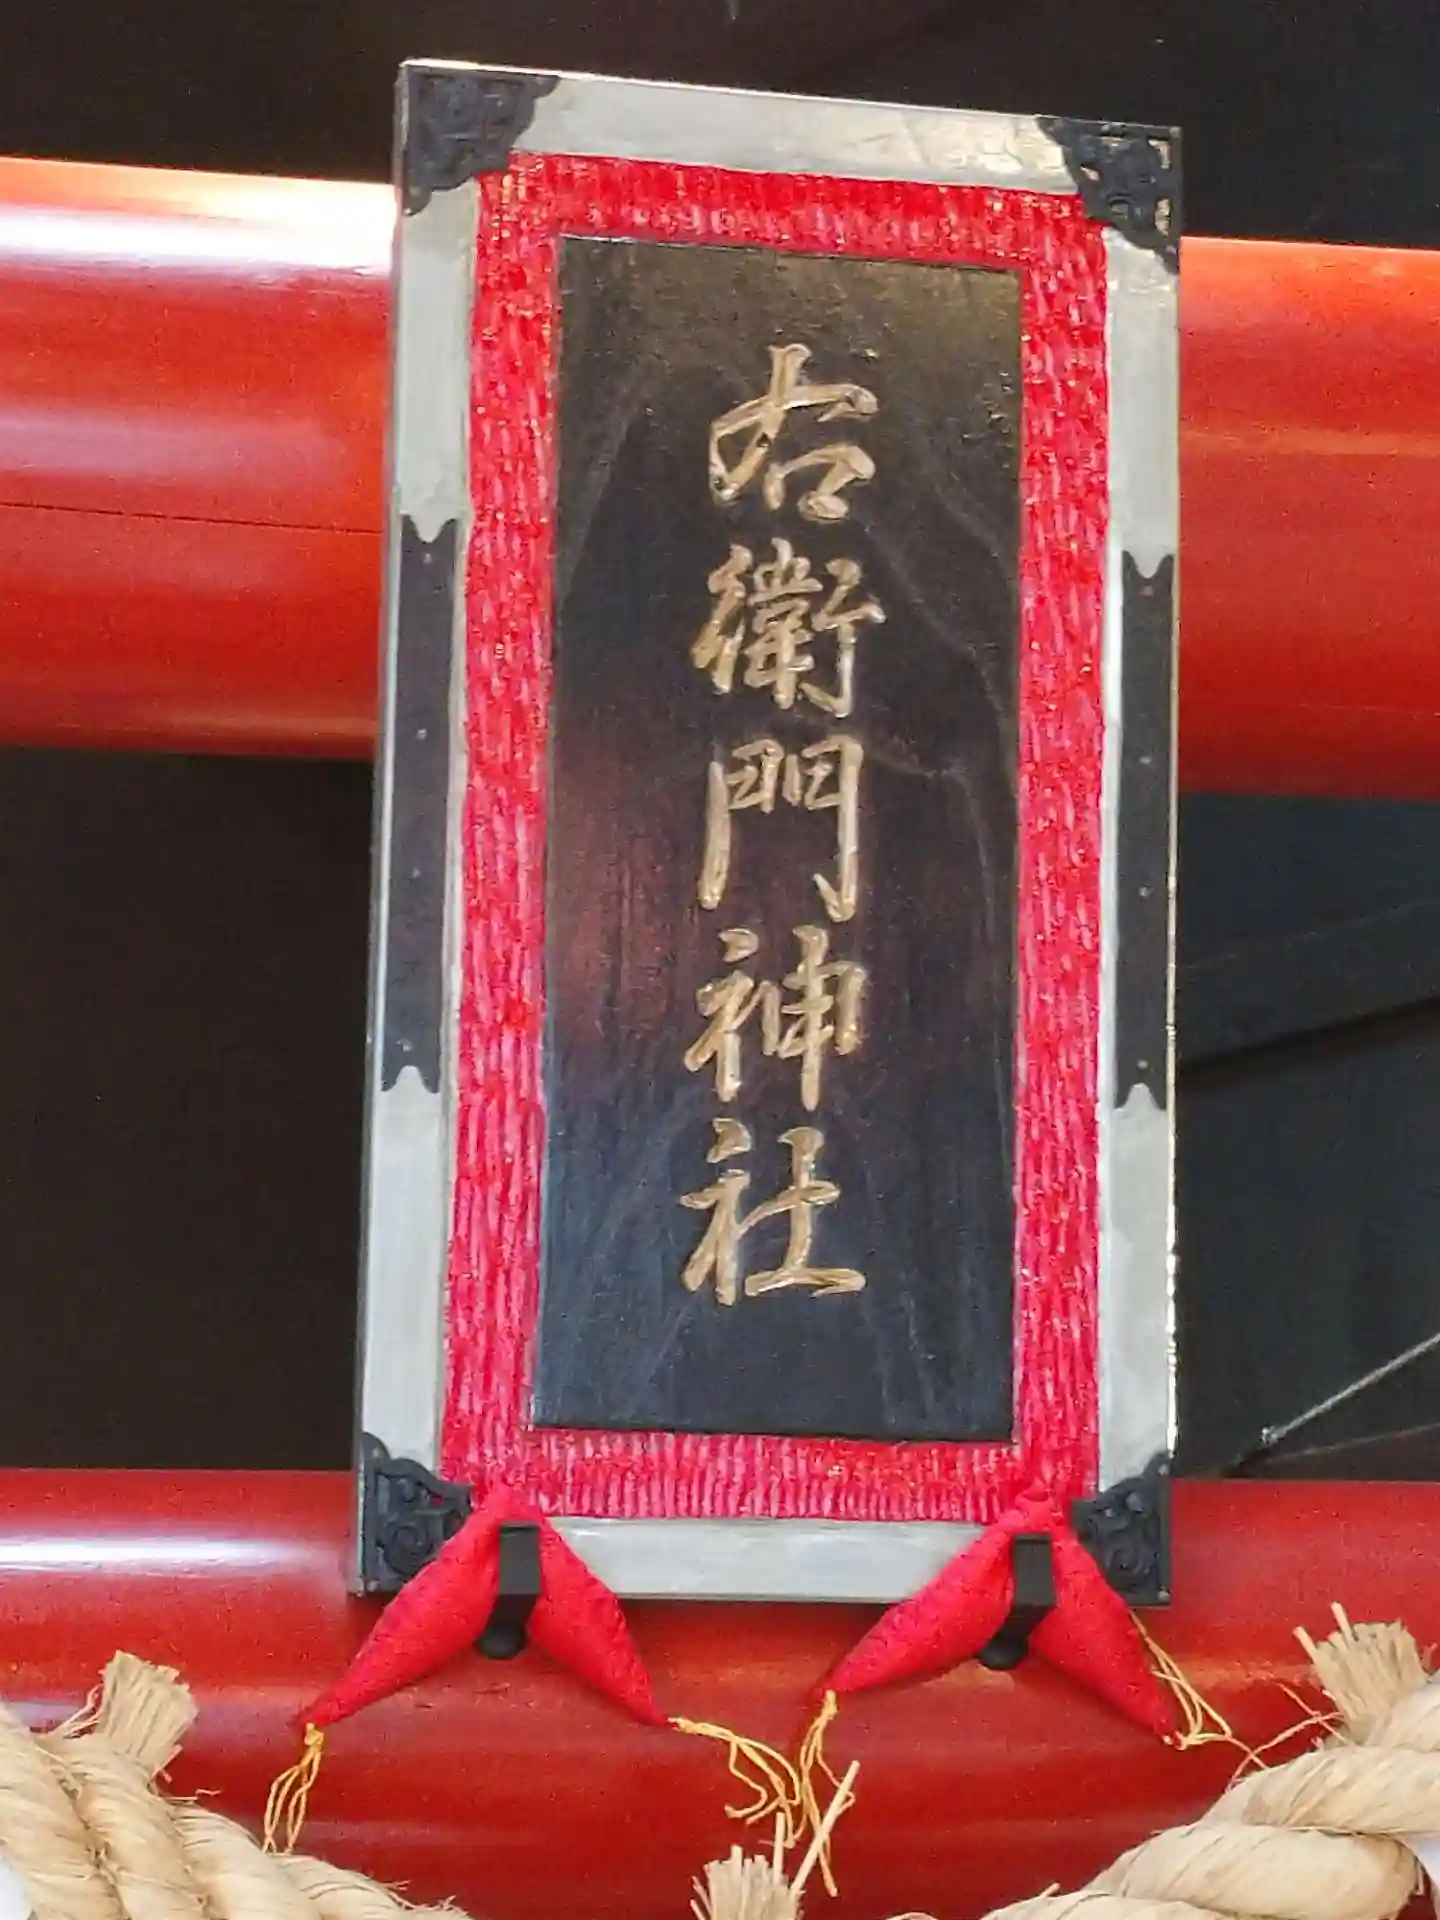 右衛門神社